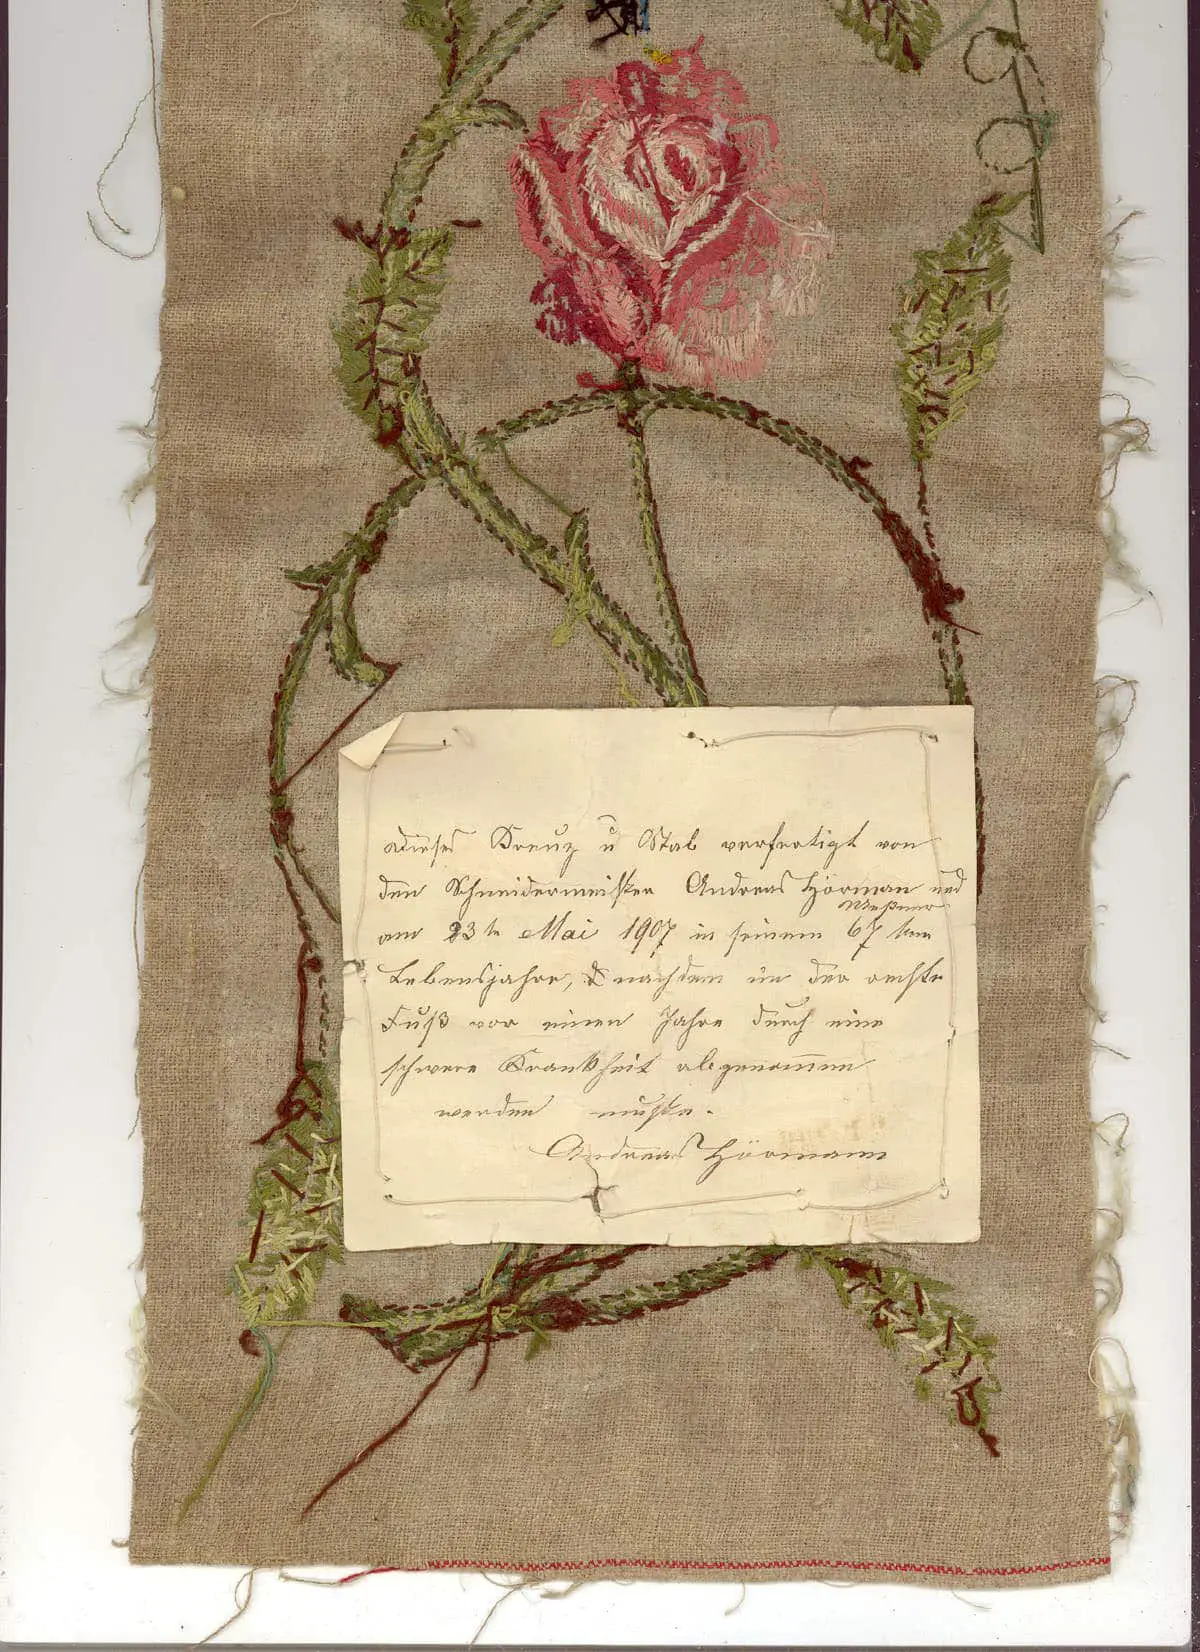 Dieses Kreuz u Stab verfertigt von
den Schneidermeister Andreas Hörman und
Meßner
am 23te Mai 1907 in seinem 67 ten
Lebensjahre, & nachdem im der rechte
Fuß vor einen Jahre durch eine
schwere Krankheit abgenommen
werden mußte.
Andreas Hörmann